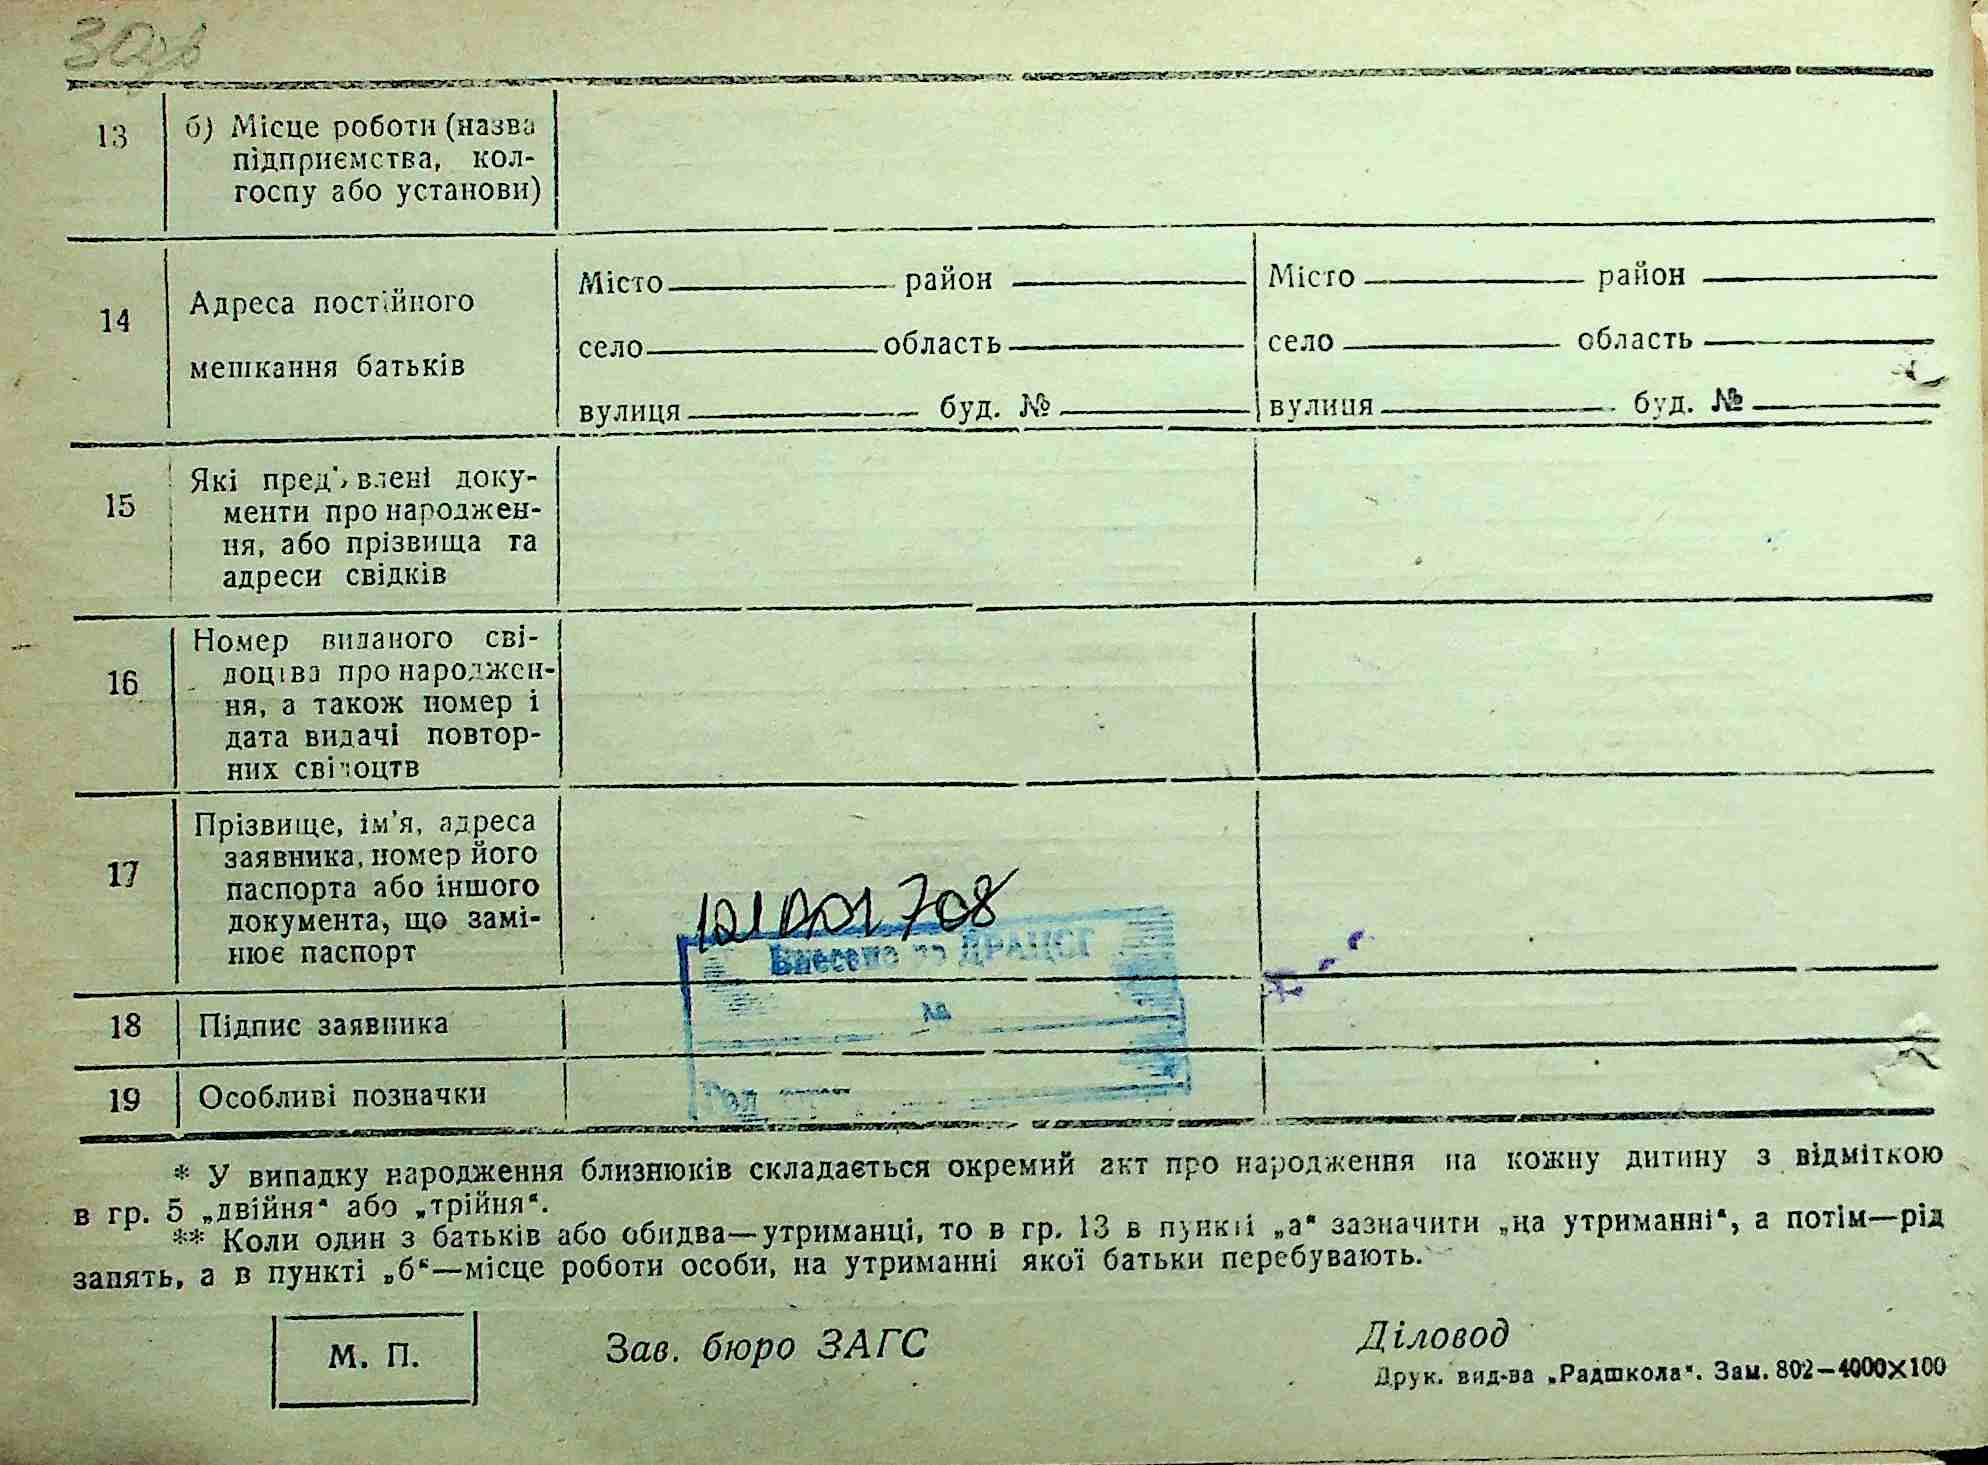 30зв
13
б) Місце роботи (назва
підприємства, кол-
госпу або установи)
14
Адреса постійного
мешкання батьків
Місто район
село область
вулиця буд. №
Місто район
село область
вулиця буд. №
15
Які пред'явлені доку-
менти про народжен-
ня, або прізвища та
адреси свідків
16
Номер виданого сві-
доцтва про народжен-
ня, а також номер і
дата видачі повтор-
них свідоцтв
17
Прізвище, ім'я, адреса
заявника, номер його
паспорта або іншого
документа, що замі-
нює паспорт
Внесено до ДРАЦСГ
№
18
Підпис заявника
19
Особливі позначки
* У випадку народження близнюків складається окремий акт про народження на кожну дитину з відміткою
в гр. 5 „двійня“ або „трійня“.
** Коли один з батьків або обидва—утриманці, то в гр. 13 в пункті „а“ зазначити „на утриманні“, а потім—рід
занять, а в пункті „б“—місце роботи особи, на утриманні якої батьки перебувають.
М. П.
Зав. бюро ЗАГС
Діловод
Друк. вид-ва „Радшкола“. Зам. 802—4000×100